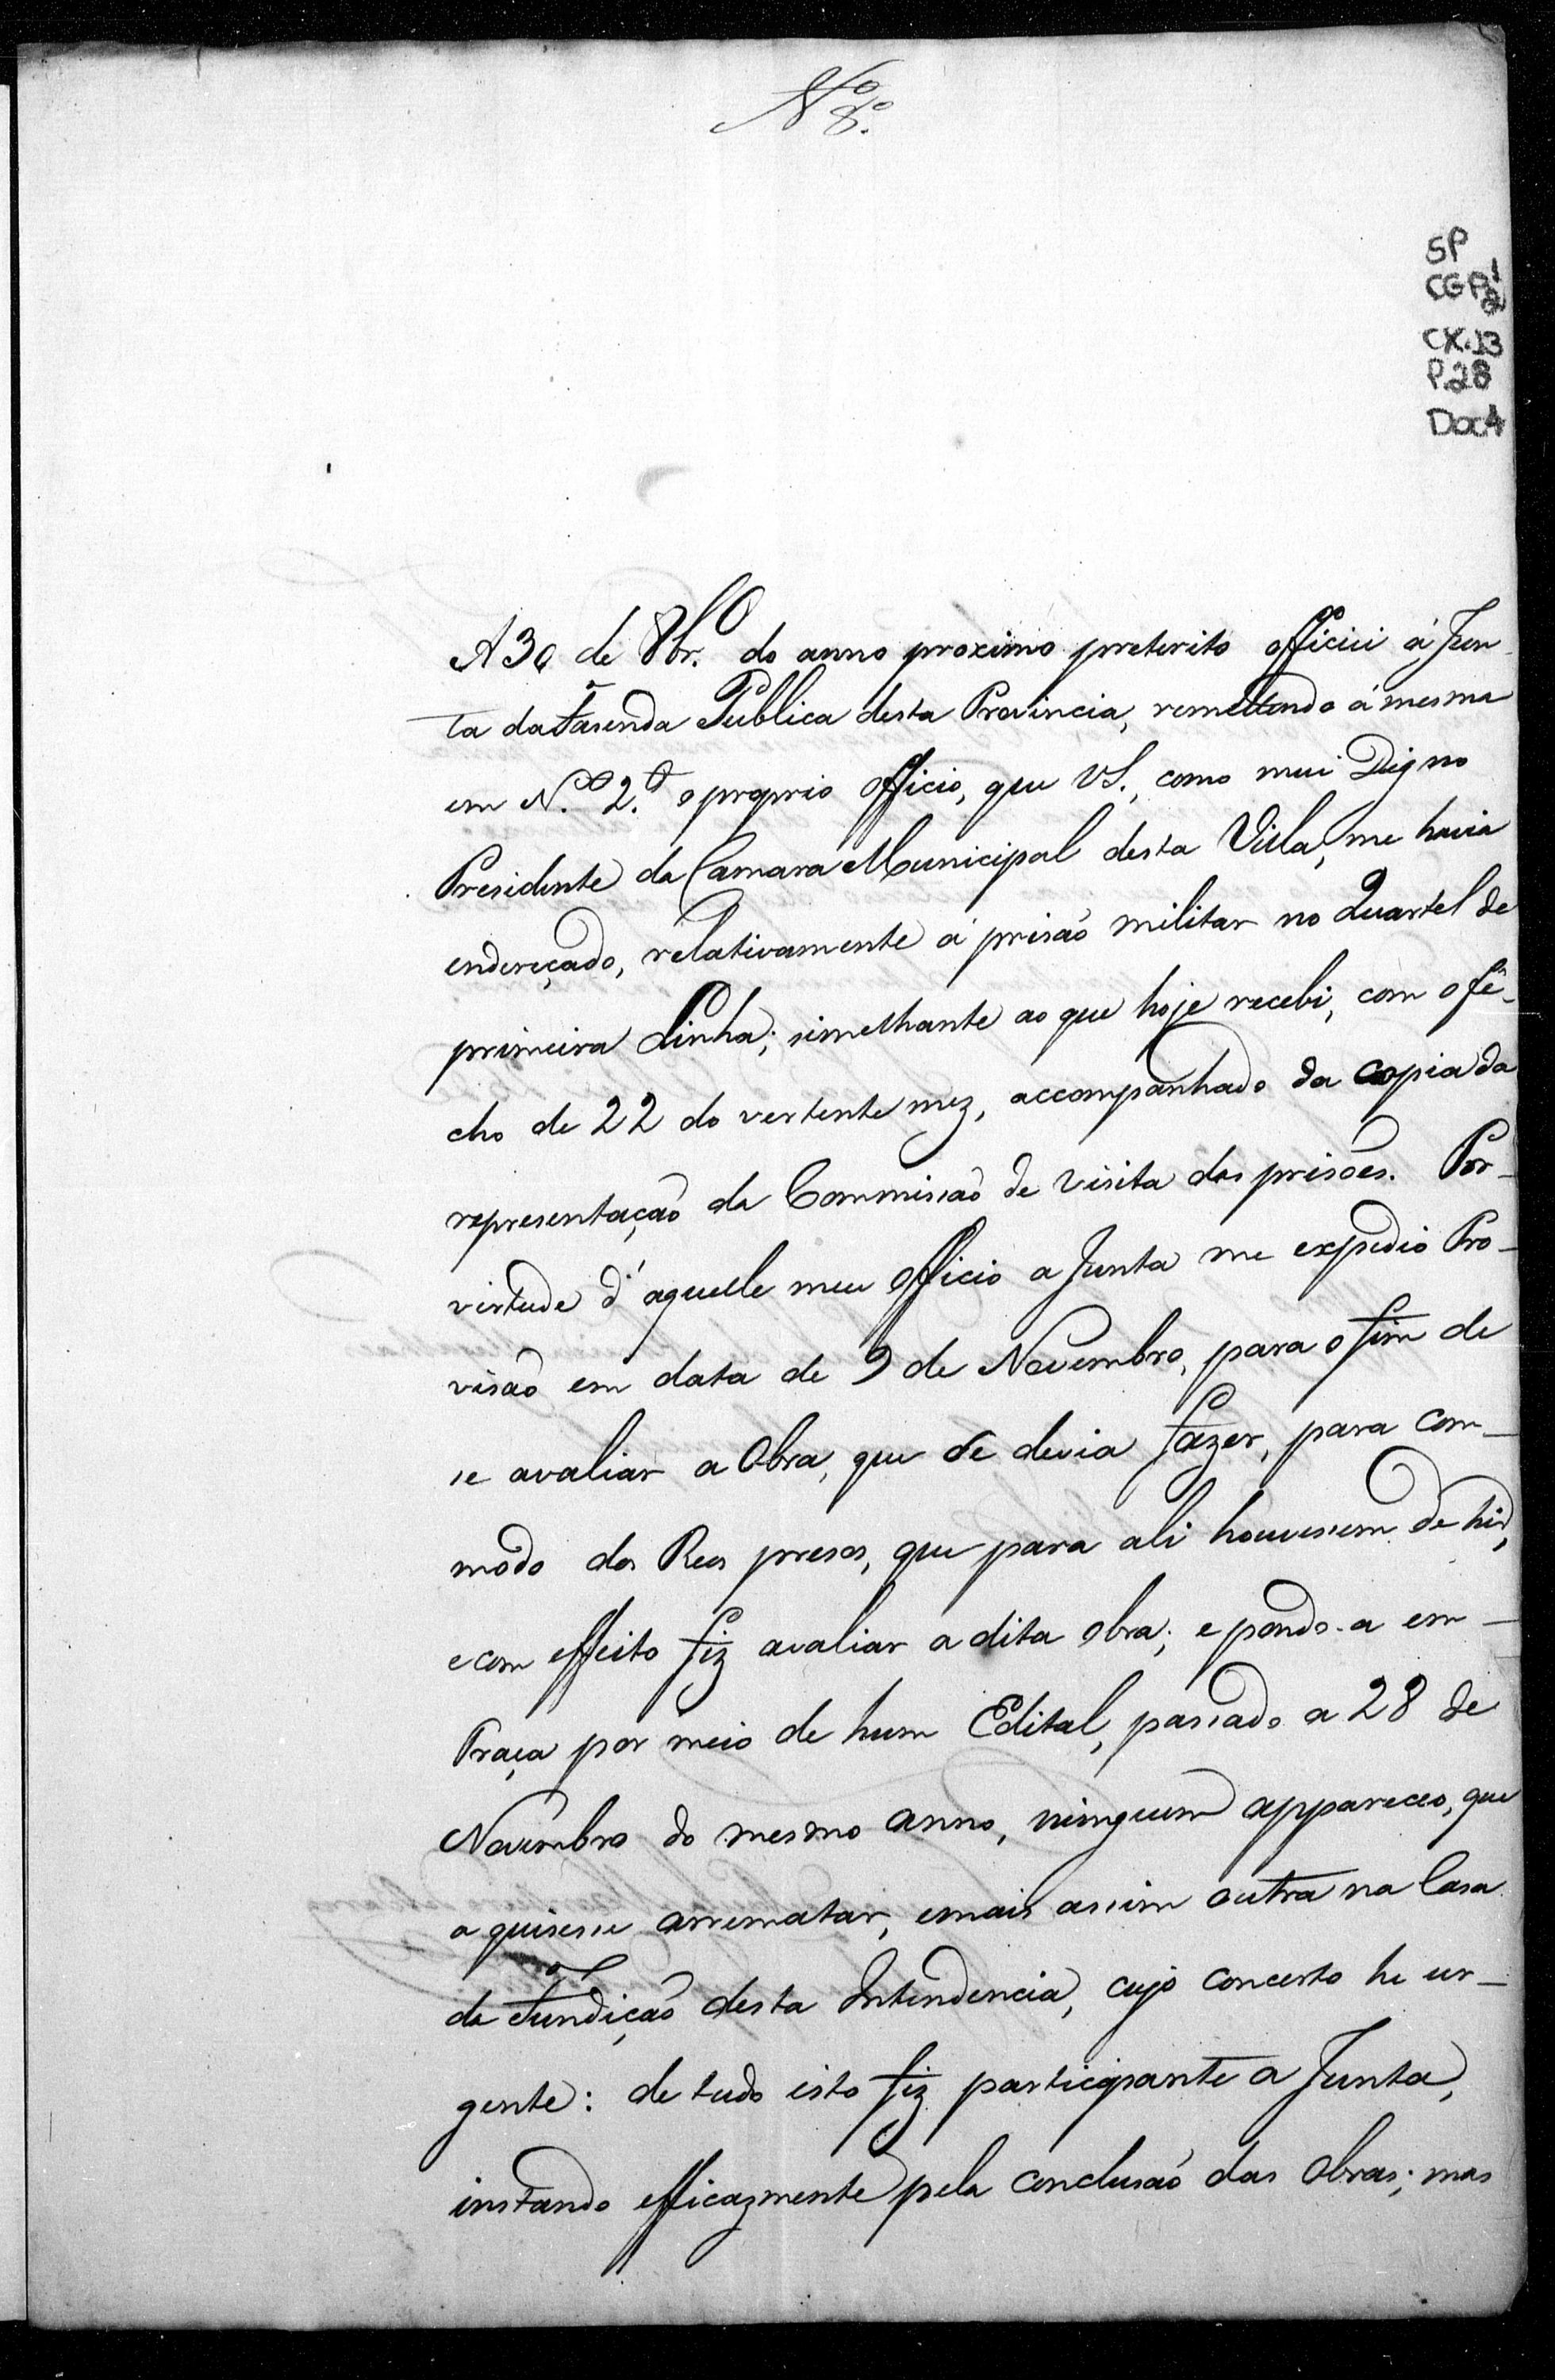 Nº 8º.
SP
CGP1
2
CX.13
P.28
Doc4
A 30 de 8br.º do anno proximo preterito officiei á Jun-
ta da Fasenda Publica desta Provincia, remettendo á mesma
em N.º 2.º o proprio Officio, que VS., como mui Digno
Presidente da Camara Municipal desta Villa, me havia
endereçado, relativamente á prisaõ militar no Quartel de
primeira Linha; simelhante ao que hoje recebi, com o fê-
cho de 22 do vertente mez, accompanhado da copia da
representaçaõ da Commissaõ de visita das prisoẽs. Por
virtude d'aquelle meu Officio a Junta me expedio Pro-
visaõ em data de 9 de Novembro, para o fim de
se avaliar a Obra, que se devia fazer, para com-
modo dos Reos presos, que para ali houvessem de hir,
e com effeito fiz avaliar a dita obra; e pondo-a em
Praça por meio de hum Edital, passado a 28 de
Novembro do mesmo anno, ninguem appareceo, que
a quisesse arrematar, e mais assim outra na Casa
da Fundiçaõ desta Intendencia, cujo concerto he ur-
gente: de tudo isto fiz participante a Junta,
instando efficazmente pela conclusaõ das Obras; mas